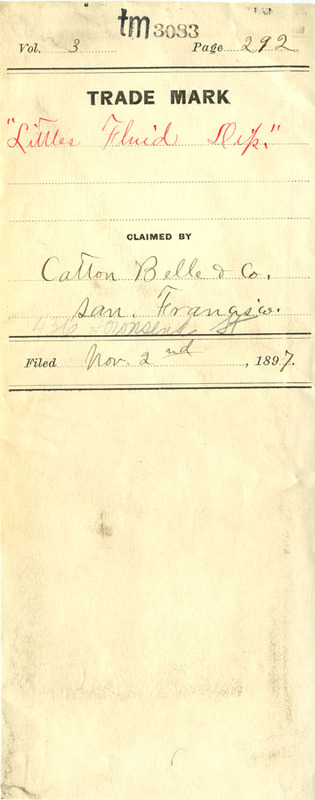 tm 3083
Vol. 3 Page 292
TRADE MARK
"Littles Fluid Dip."
CLAIMED BY
Catton Belle & Co.
San. Francisco.
Townsend St
Filed Nov. 2nd, 1897.